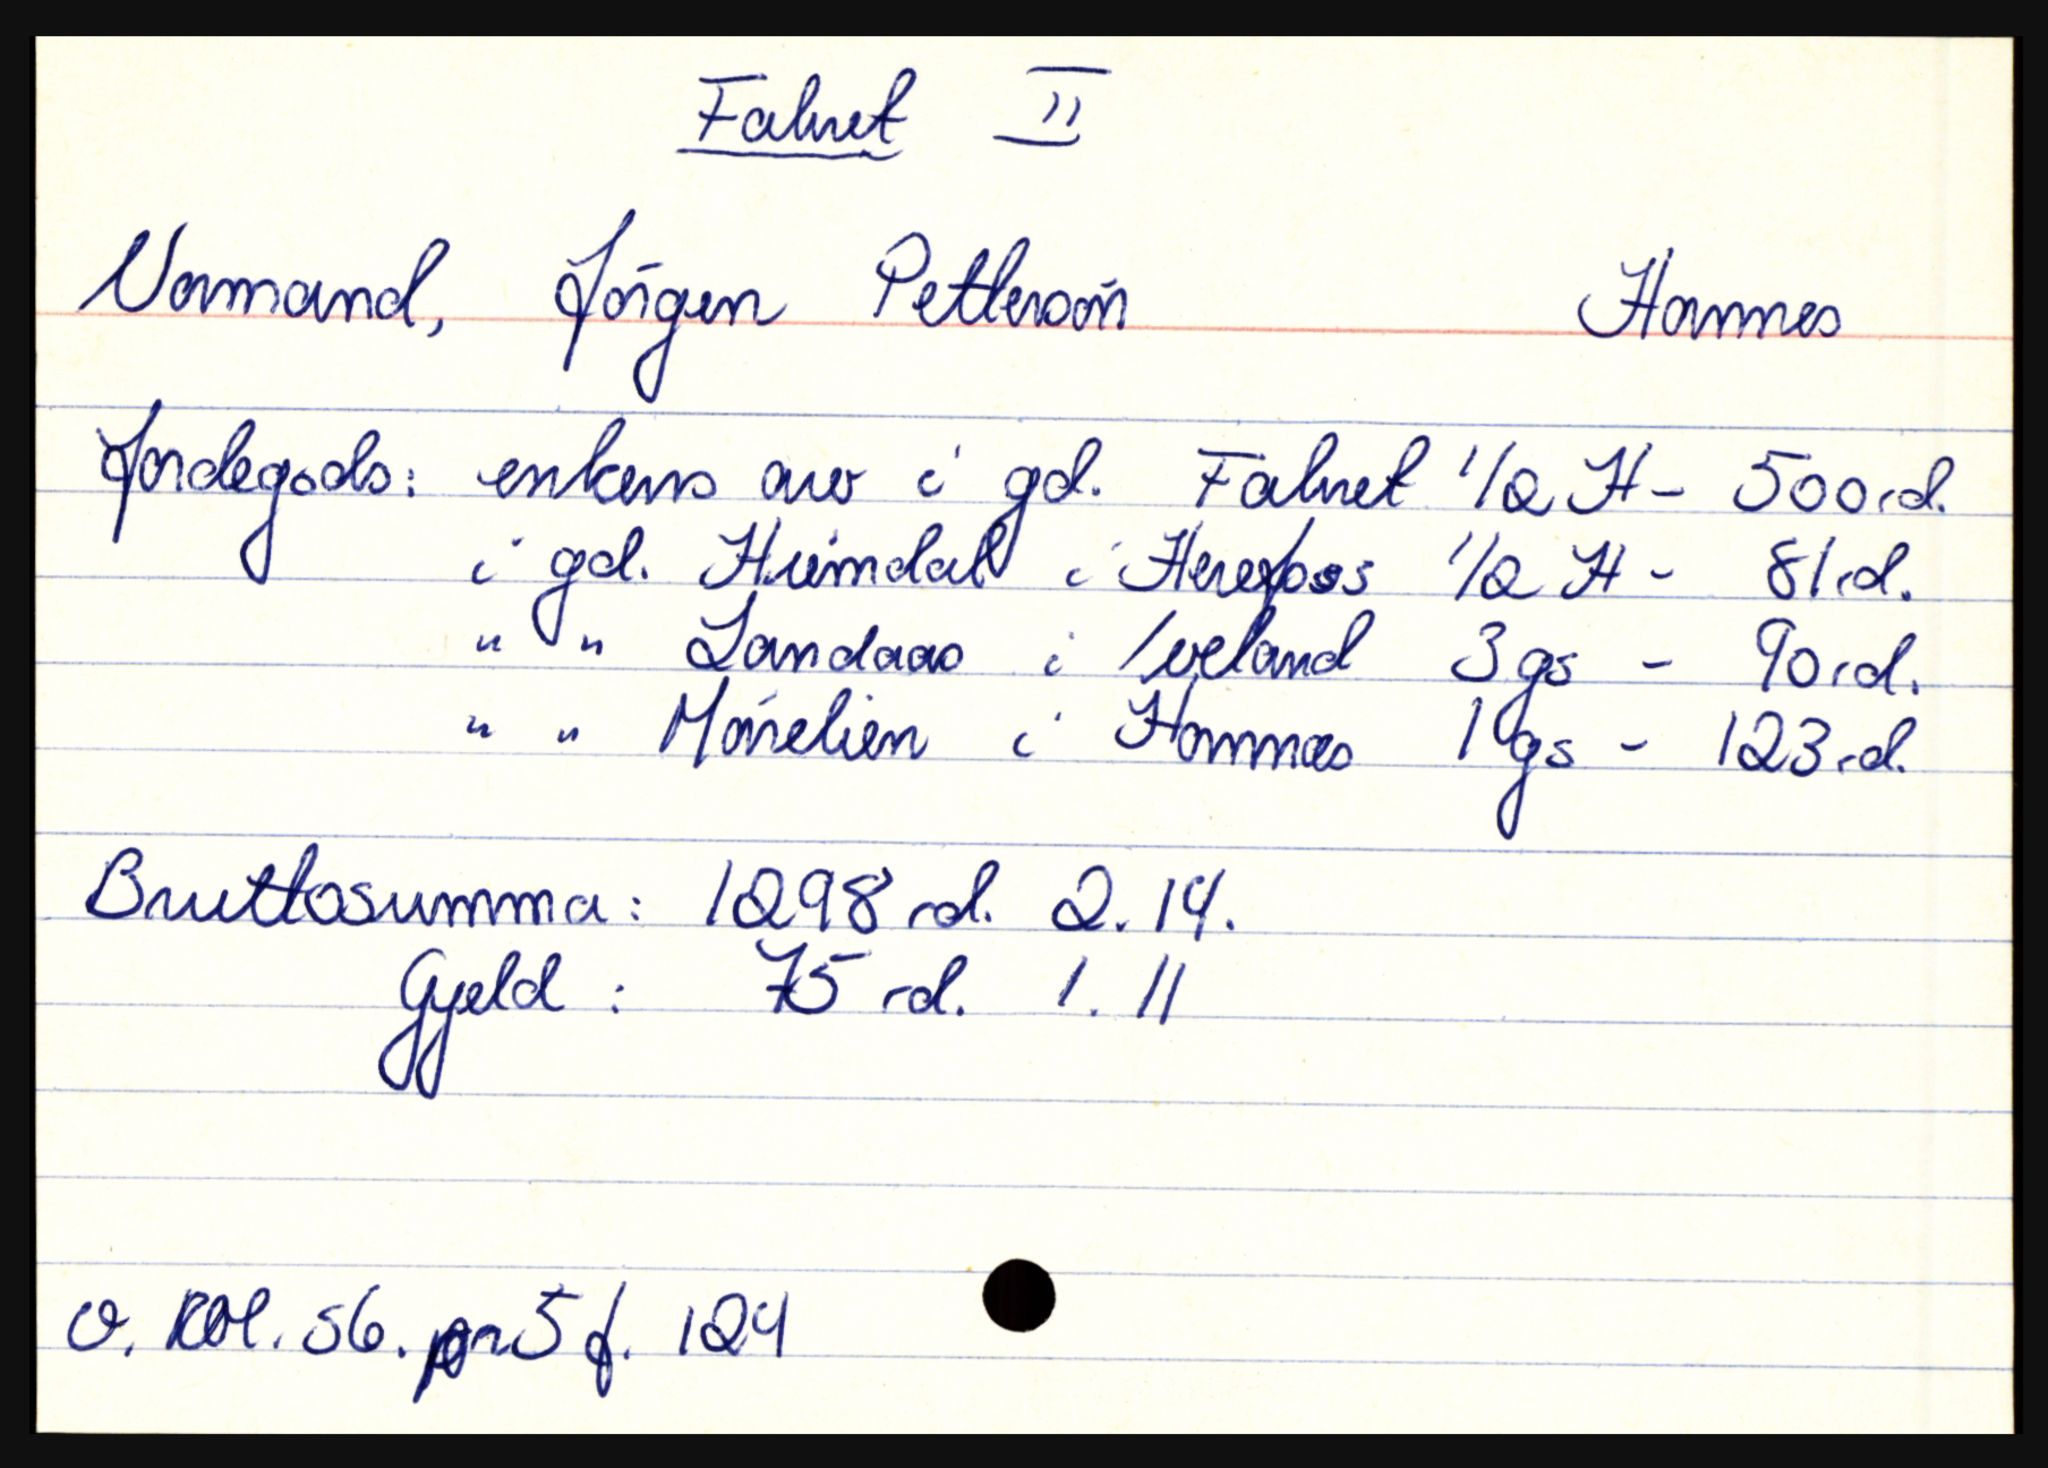 Falnet II
Normand, Jörgen Pettersön Hornnes
Jordegods: enkens arv i gd. Falnet 1/2 H - 500 rd.
i gd. Hiimdal i Herefoss 1/2 H - 81 rd.
" " Landaas i Iveland 3 gs - 90 rd.
" " Mörelien i Hornnes 1 gs - 123 rd.
Bruttosumma: 1298 rd. 2. 14.
Gjeld: 75 rd. 1. 11
o. Rbl. s6. pr 5 f. 124